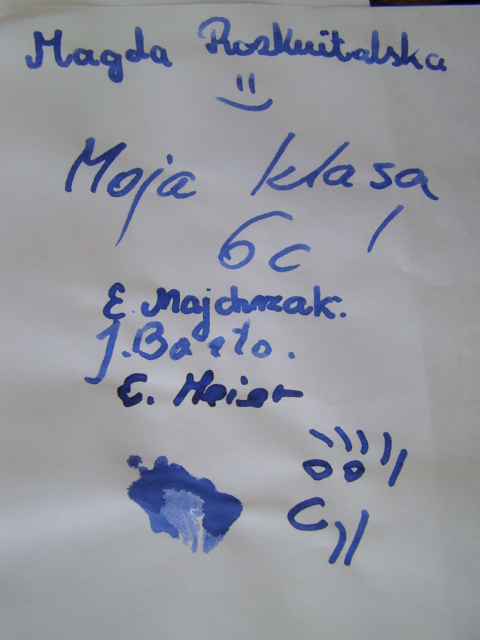 Magda Rozkwitalska
Moja klasa
6c
E. Majchrzak.
J. Barło.
E. Meier